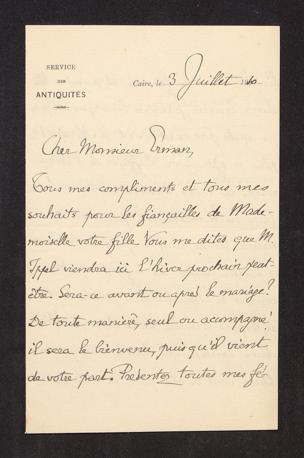 SERVICE
DES
ANTIQUITÉS
Caire, le 3 Juillet
Cher Monsieur Erman,
Tous mes compliments et tous mes
souhaits pour les fiançailles de Made-
moiselle votre fille. Vous me dites que M.
Ippel viendra ici l'hiver prochain peut-
être. Sera-ce avant ou après le mariage?
De toute manière, seul ou accompagné
il sera le bienvenu, puisqu'il vient
de votre part. Présentez toutes mes fé-